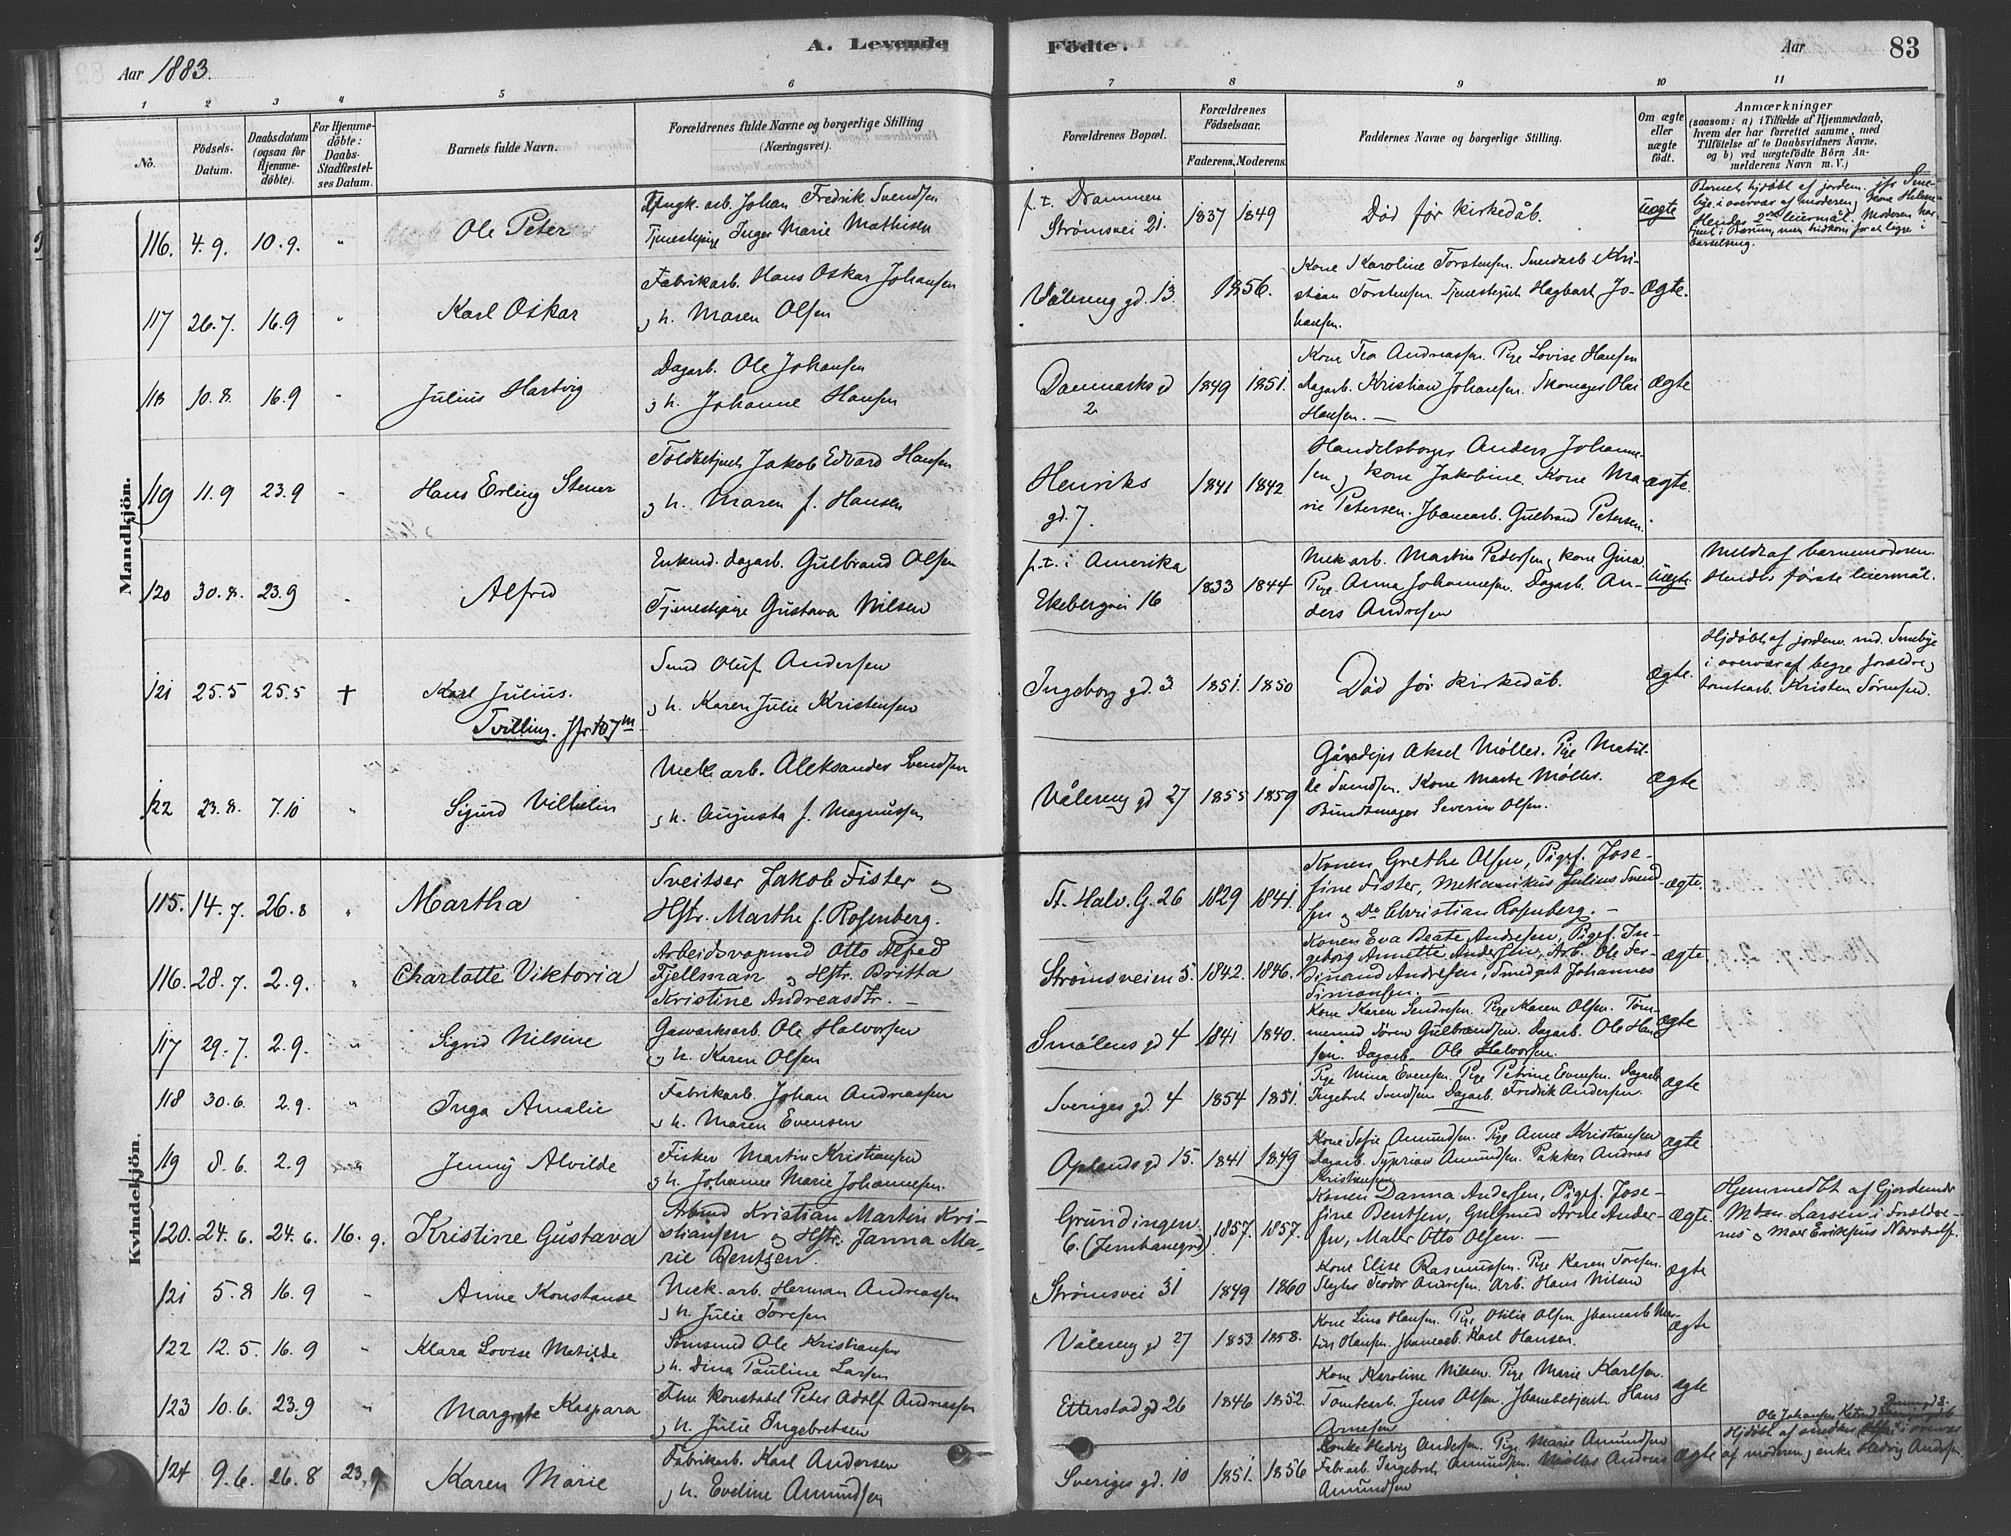 Aar 1883.
A. Levende
Födte.
Aar
83
1 2 3 4 5 6 7 8 9 10 11
No.
Födsels-
Datum.
Daabsdatum
(ogsaa for
Hjemme-
döbte).
For Hjemme-
döbte:
Daabs-
Stadfæstel-
ses Datum.
Barnets fulde Navn.
Forældrenes fulde Navne og borgerlige Stilling
(Næringsvei).
Forældrenes Bopæl.
Forældrenes
Födselsaar.
Faderens. Moderens.
Faddernes Navne og borgerlige Stilling.
Om ægte
eller
uægte
födt.
Anmærkninger
(saasom: a) i Tilfælde af Hjemmedaab,
hvem der har forrettet samme, med
Tilföielse af to Daabsvidners Navne.
og b) ved uægtefödte Börn An-
melderens Navn m. V.)
Mandkjön.
116. 4.9. 10.9. " Ole Peter
arb. Johan Fredrik Svendsen
Tjenestepige Inger Marie Mathisen
p.t. Drammen
Strømsvei 21. 1837 1849 Død før kirkedåb. Uægte
117 26.7. 16.9 " Karl Oskar
Fabrikarb. Hans Oskar Johansen
og h. Maren Olsen
Vålereng gd. 13. 1856.
Kone Karoline Torstensen. Smedarb. Kri-
stian Torstensen. Tjenestegut Hagbart Jo-
hansen.
Ægte.
118 10.8. 16.9 " Julius Hartvig
Dagarb. Ole Johansen
og h. Johanne Hansen
Danmarks gd
2 1849 1851.
Kone Tea Andreassen. Pige Lovise Hansen
Dagarb. Kristian Johansen. Skomager Olai
Hansen. —
Ægte
119 11.9 23.9 " Hans Erling Stener
Toldbetjent Jakob Edvard Hansen
og h. Maren f. Hansen
Henriks
gd. 7. 1841 1842
Handelsborger Anders Johanne-
sen og kone Jakobine. Kone Ma-
rie Petersen. Jbanearb. Gulbrand Petersen.
Ægte.
120 30.8. 23.9 " Alfred
Enkemd. dagarb. Gulbrand Olsen
Tjenestepige Gustava Nilsen
p.t. i Amerika
Ekebergvei 16 1833 1844
Mek arb. Martin Pedersen og kone Gina
Pige Anna Johannesen. Dagarb. An-
ders Andresen
Uægte.
Meldt af barnemoderen.
Hendes første leiermål.
121 25.5 25.5 † Karl Julius.
Tvilling. Jfr 107 m
Smed Oluf Andersen
og h. Karen Julie Kristensen
Ingeborg gd. 3 1851. 1850 Død før kirkedåb. Ægte.
Hjdøbt af jordem. md. Smebye
i overvær af begge forældre og
tomtearb. Kristen Sørensen.
122 23.8. 7.10 " Sigurd Vilhelm
Mek. arb. Aleksander Svendsen
og h. Augusta f. Magnussen
Vålereng gd 27 1855 1859
Gårdejer Aksel Møller. Pige Matil-
de Svendsen. Kone Marte Møller.
Bundtmager Severin Olsen.
Ægte
Kvindekjön.
115. 14.7. 26.8 " Martha
Sveitser Jakob Fister og
Hstr. Marthe f. Rosenberg.
St. Halv. G. 26 1829 1841.
Konen Grethe Olsen, Pigef. Jose-
fine Fister, Mekanikus Julius Svend-
sen og Do Christian Rosenberg. —
ægte.
116. 28.7. 2.9. " Charlotte Viktoria
Arbeidsvogmand Otto Alfred
Fjellman og Hstr. Britta
Kristine Andreasdtr. —
Strømsveien 5. 1842. 1846.
Konen Eva Beate Andresen, Pigef. In-
geborg Annette Andersen, Arb. Ole Fer-
dinand Andresen, Smedgut Johannes
Simonsen.
ægte
117 29.7. 2.9. " Sigrid Nilsine
Gasværksarb. Ole Halvorsen
og h. Karen Olsen
Smålens gd 4 1841 1840.
Kone Karen Sendresen. Pige Karen Olsen. Tøm-
mermd Søren Gulbrandsen. Dagarb. Ole Han-
sen. Dagarb. Ole Halvorsen.
Ægte
118 30.6. 2.9. " Inga Amalie
Fabrikarb. Johan Andreassen
og h. Maren Evensen
Sveriges gd. 4 1854 1851.
Pige Mina Evensen. Pige Petrine Evensen. Dagarb
Ingebret Svendsen Dagarb. Fredrik Andersen.
Ægte
119 8.6. 2.9 Jenny Alvilde
Fisker Martin Kristiansen
og h. Johanne Marie Johannesen.
Oplands gd 15. 1841 1849
Kone Sofie Amundsen. Pige Anne Kristiansen
Dagarb. Syprian Amundsen. Pakker Andreas
Kristiansen
Ægte
120. 24.6. 24.6. 16.9. Kristine Gustava
Arbmd Kristian Martin Kri-
stiansen og Hstr. Janna Ma-
rie Bentzen.
Grundingen
6. (Jernbanegrd) 1857. 1857.
Konen Danna Andersen, Pigef. Jose-
fine Bentsen, Gulsmed Arne Ander-
sen, Maler Otto Olsen. —
Ægte.
Hjemmedbt af Gjordemdr
121 5.8 16.9 " Anne Konstanse
Mek. arb. Herman Andreassen
og h. Julie Toresen
Strømsvei 31 1849 1860
Kone Elise Rasmussen. Pige Karen Toresen.
Slagter Teodor Andresen. Arb. Hans Nilsen
Ægte
122 12.5. 16.9 " Klara Lovise Matilde
Tømmermd Ole Kristiansen
og h. Dina Pauline Larsen
Vålereng gd 27 1853 1858.
Kone Lina Hansen. Pige Otilie Olsen. Jbanearb. Mar-
tin Hansen. Jbanearb. Karl Hansen.
Ægte
123 10.6. 23.9 " Margrete Kaspara
konstabel Peter Adolf Andreassen
og h. Julie Ingebretsen
Etterstad gd 26 1846 1852.
Kone Karoline Nilsen. Pige Marie Karlsen.
Tomtearb. Jens Olsen. Jbanebetjent Hans
Arnesen
Ægte
124 9.6. 26.8 23.9 Karen Marie
Fabrikarb. Karl Andersen
og h. Eveline Amundsen
Sveriges gd. 10 1851. 1856
Enke Hedvig Andersen. Pige Marie Amundsen
Fabr arb. Ingebret Amundsen. Møller Andreas
Amundsen
Ægte
af moderen og enke Hedvig Andersen.